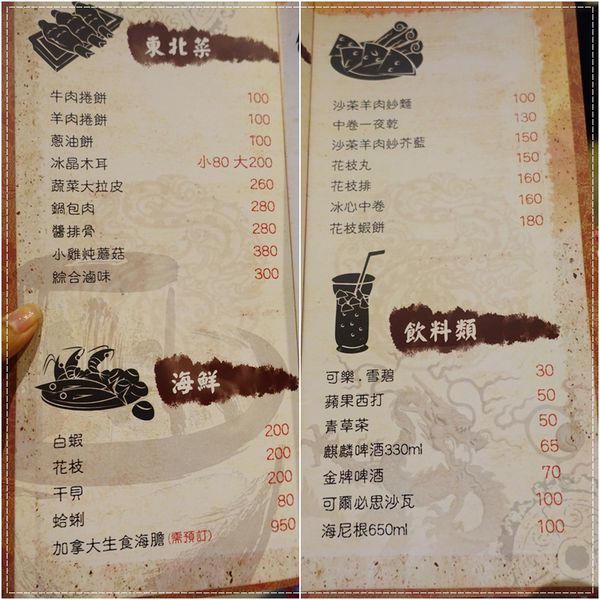 東北菜
牛肉捲餅 100
羊肉捲餅 100
蔥油餅 100
冰晶木耳 小80 大200
蔬菜大拉皮 260
鍋包肉 280
醬排骨 280
小雞炖蘑菇 380
綜合滷味 300
海鮮
白蝦 200
花枝 200
干貝 200
蛤蜊 80
加拿大生食海膽(需預訂) 950
沙茶羊肉炒麵 100
中卷一夜乾 130
沙茶羊肉炒芥藍 150
花枝丸 150
花枝排 160
冰心中卷 160
花枝蝦餅 180
飲料類
可樂.雪碧 30
蘋果西打 50
青草茶 50
麒麟啤酒330ml 65
金牌啤酒 70
可爾必思沙瓦 100
海尼根650ml 100